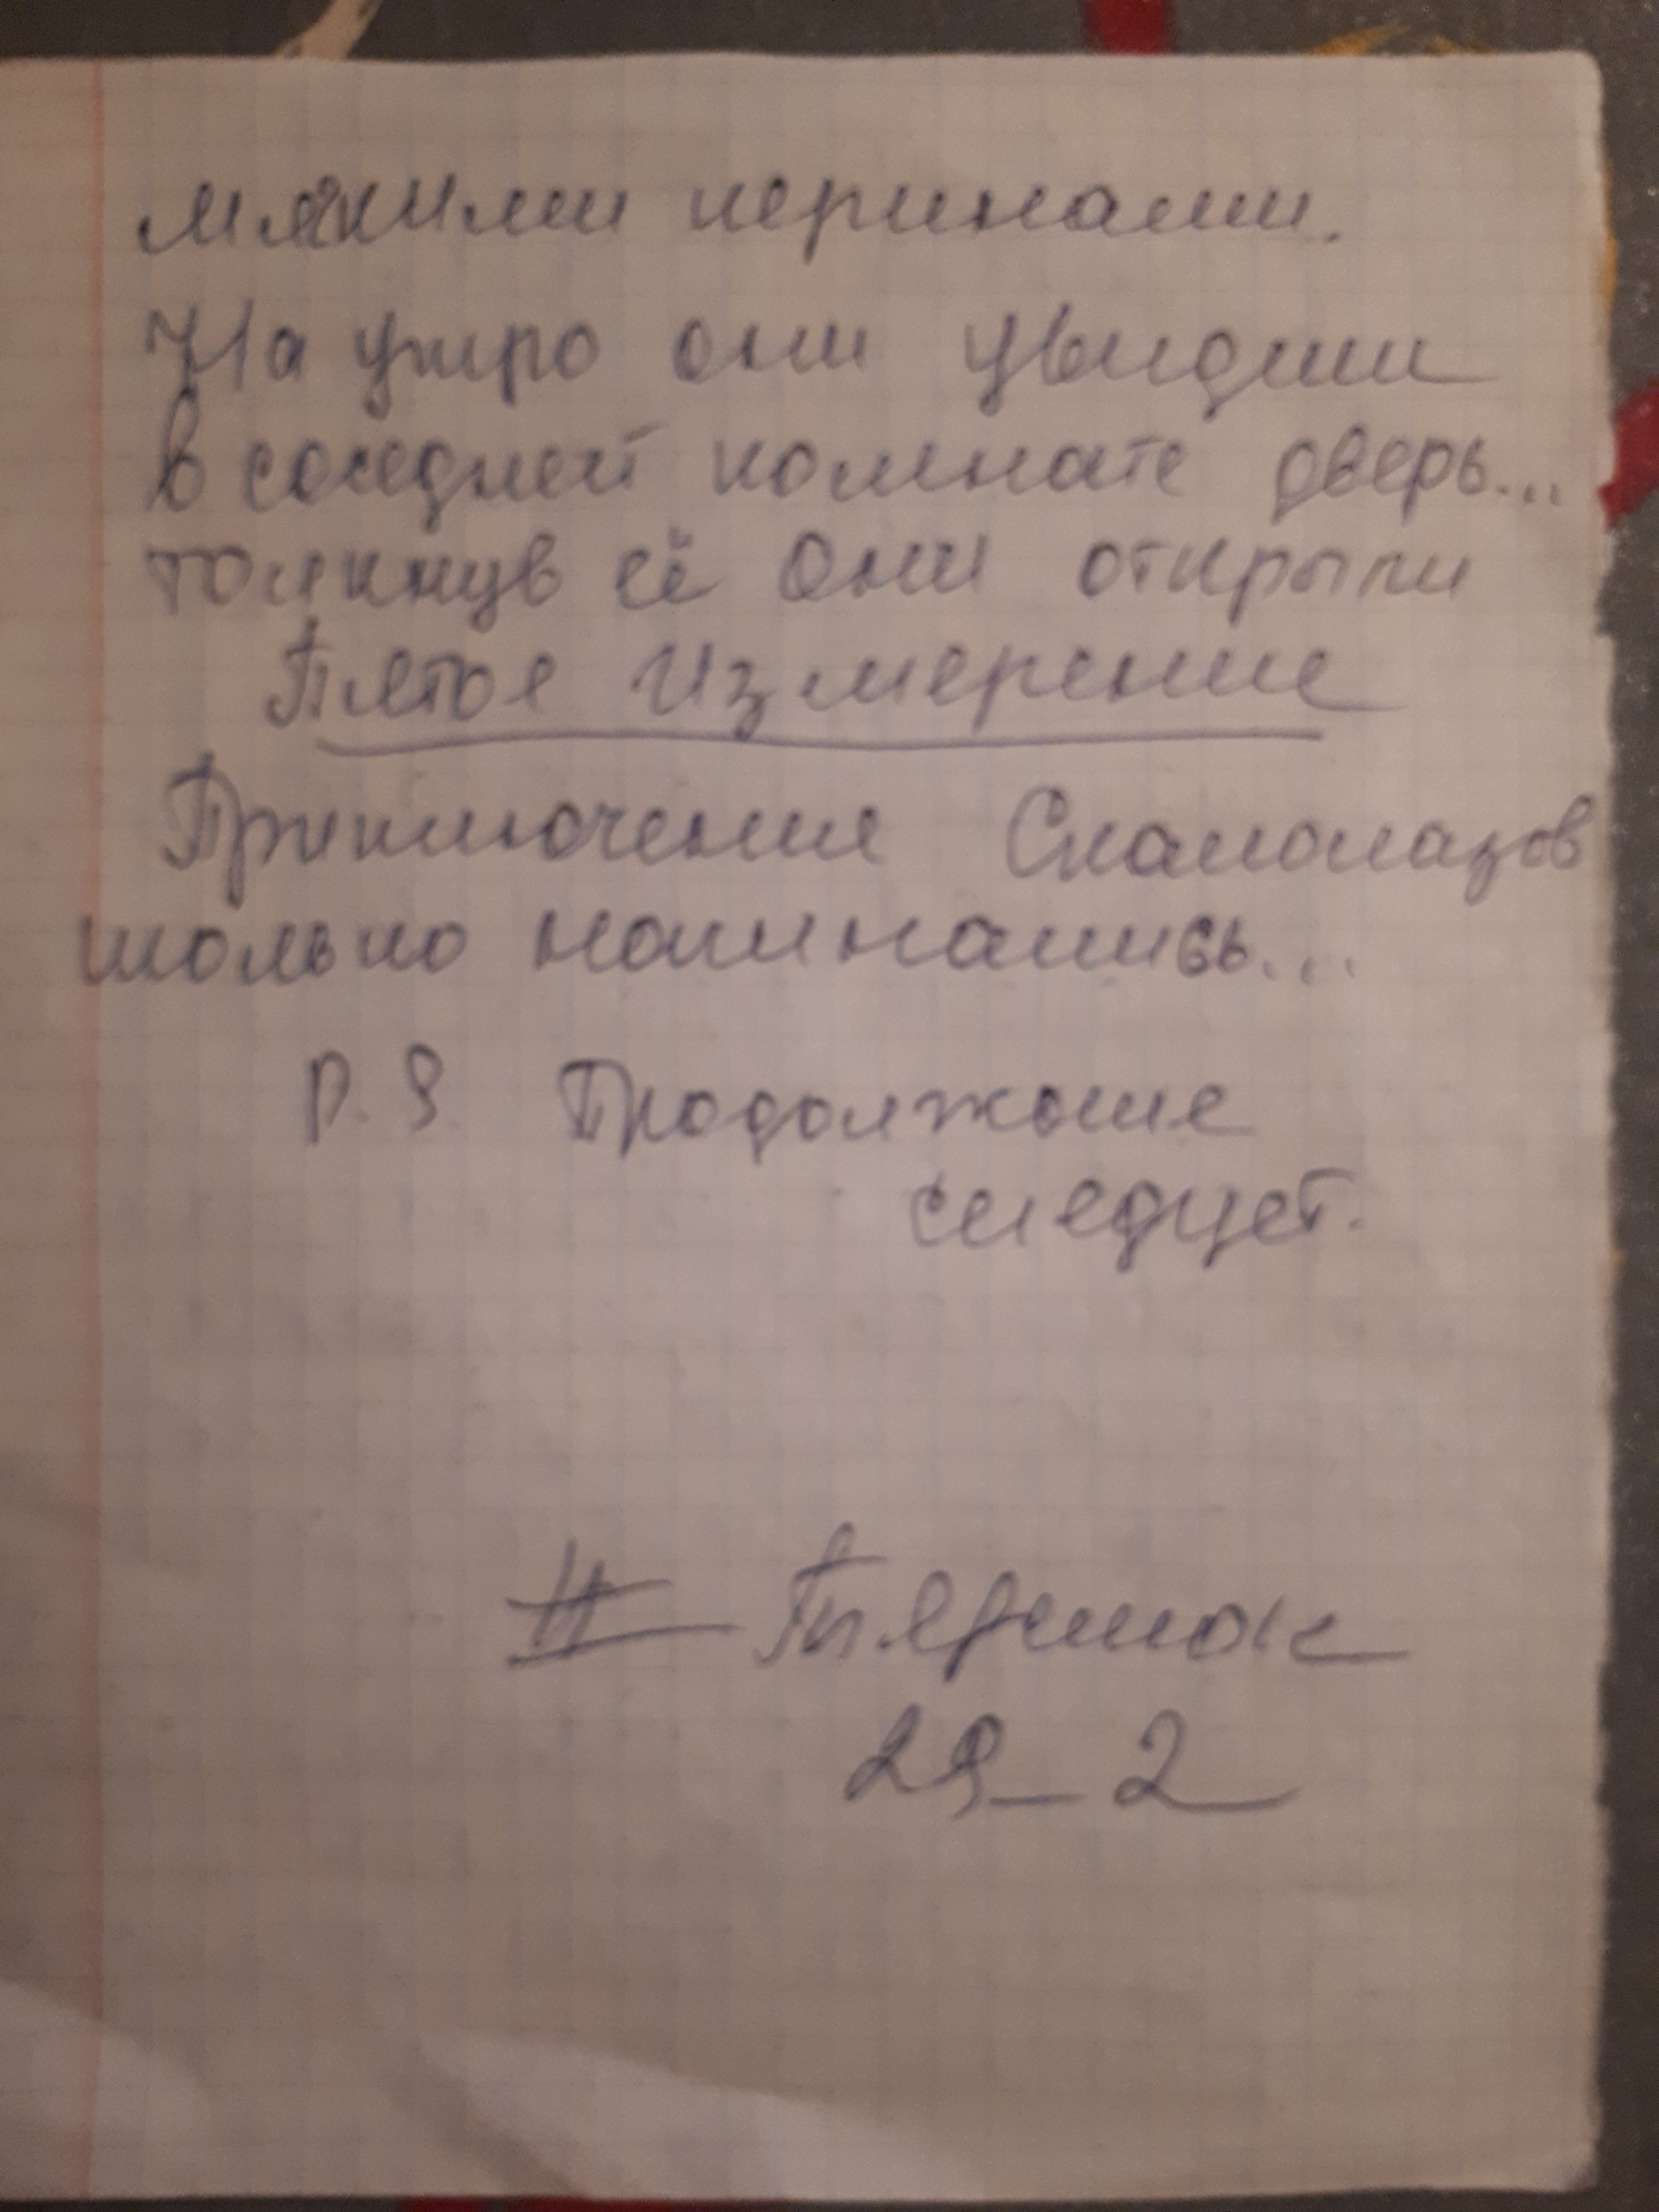 мякими перинами.
На утро они увидели
в соседней комнате дверь...
толкнув её они открыли
Пятое Измерение
Приключения Скалолазов
только начинались...
P.S. Продолжение
следует.
29_2